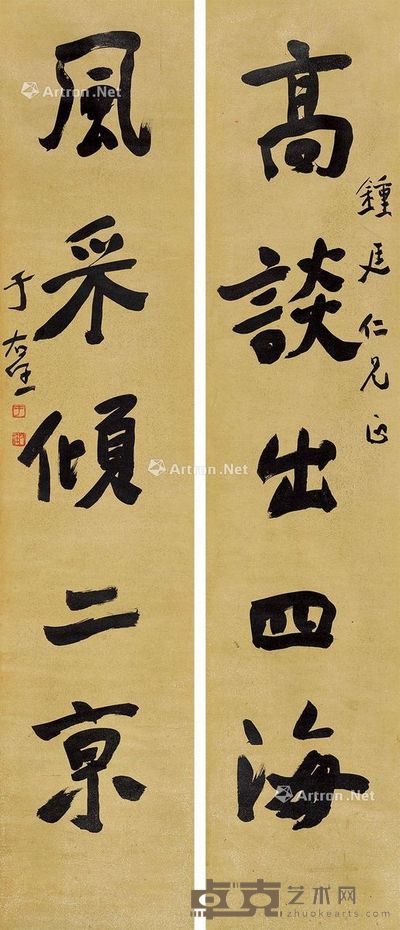 高談出四海
鍾廷仁兄正
風采傾二京
于右任
Artron.Net
Artron.Net
Artron.Net
卓克艺术网
www.zhuokearts.com